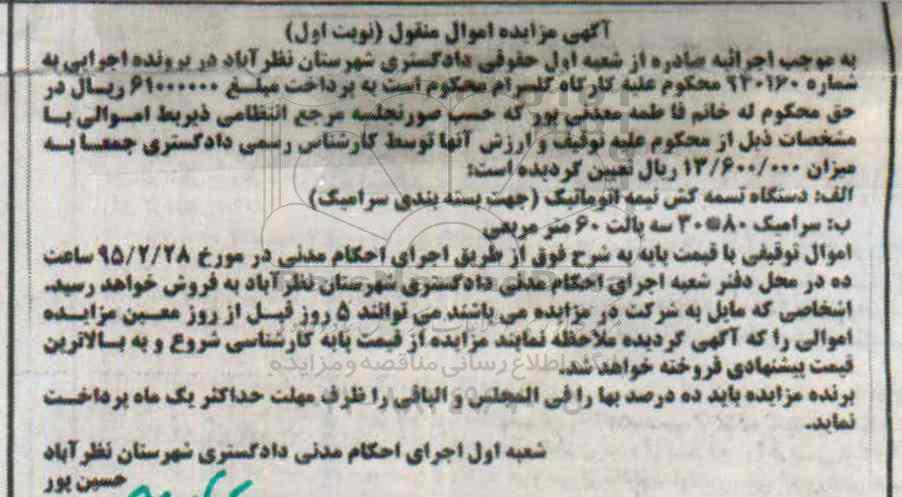 آگهی مزایده اموال منقول (نوبت اول)
به موجب اجرائیه صادره از شعبه اول حقوقی دادگستری شهرستان نظرآباد در پرونده اجرایی به
شماره ۹۴۰۱۶۰ محکوم علیه کارگاه گلسرام محکوم است به پرداخت مبلغ ۶۱۰۰۰۰۰۰ ریسال در
حق محکوم له خانم فاطمه معدنی پور که حسب صورتجلسه مرجع انتظامی ذیربط اموالی با
مشخصات ذیل از محکوم علیه توقیف و ارزش آنها توسط کارشناس رسمی دادگستری جمعا به
میزان ۱۳/۶۰۰/۰۰۰ ریال تعیین گردیده است:
الف: دستگاه تسمه کش نیمه اتوماتیک (جهت بسته بندی سرامیک)
ب: سرامیک ۸۰*۳۰ سه پالت ۶۰ متر مربعی
اموال توقیفی با قیمت پایه به شرح فوق از طریق اجرای احکام مدنی در مورخ ۹۵/۲/۲۸ ساعت
ده در محل دفتر شعبه اجرای احکام مدنی دادگستری شهرستان نظرآباد به فروش خواهد رسید.
اشخاصی که مایل به شرکت در مزایده می باشند می توانند ۵ روز قبل از روز معین مزایده
اموالی را که آگهی گردیده ملاحظه نمایند مزایده از قیمت پایه کارشناسی شروع و به بالاترین
قیمت پیشنهادی فروخته خواهد شد.
پایگاه اطلاع رسانی مناقصه و مزایده
برنده مزایده باید ده درصد بها را فی المجلس و الباقی را ظرف مهلت حداکثر یک ماه پرداخت
نماید.
شعبه اول اجرای احکام مدنی دادگستری شهرستان نظرآباد
حسین پور